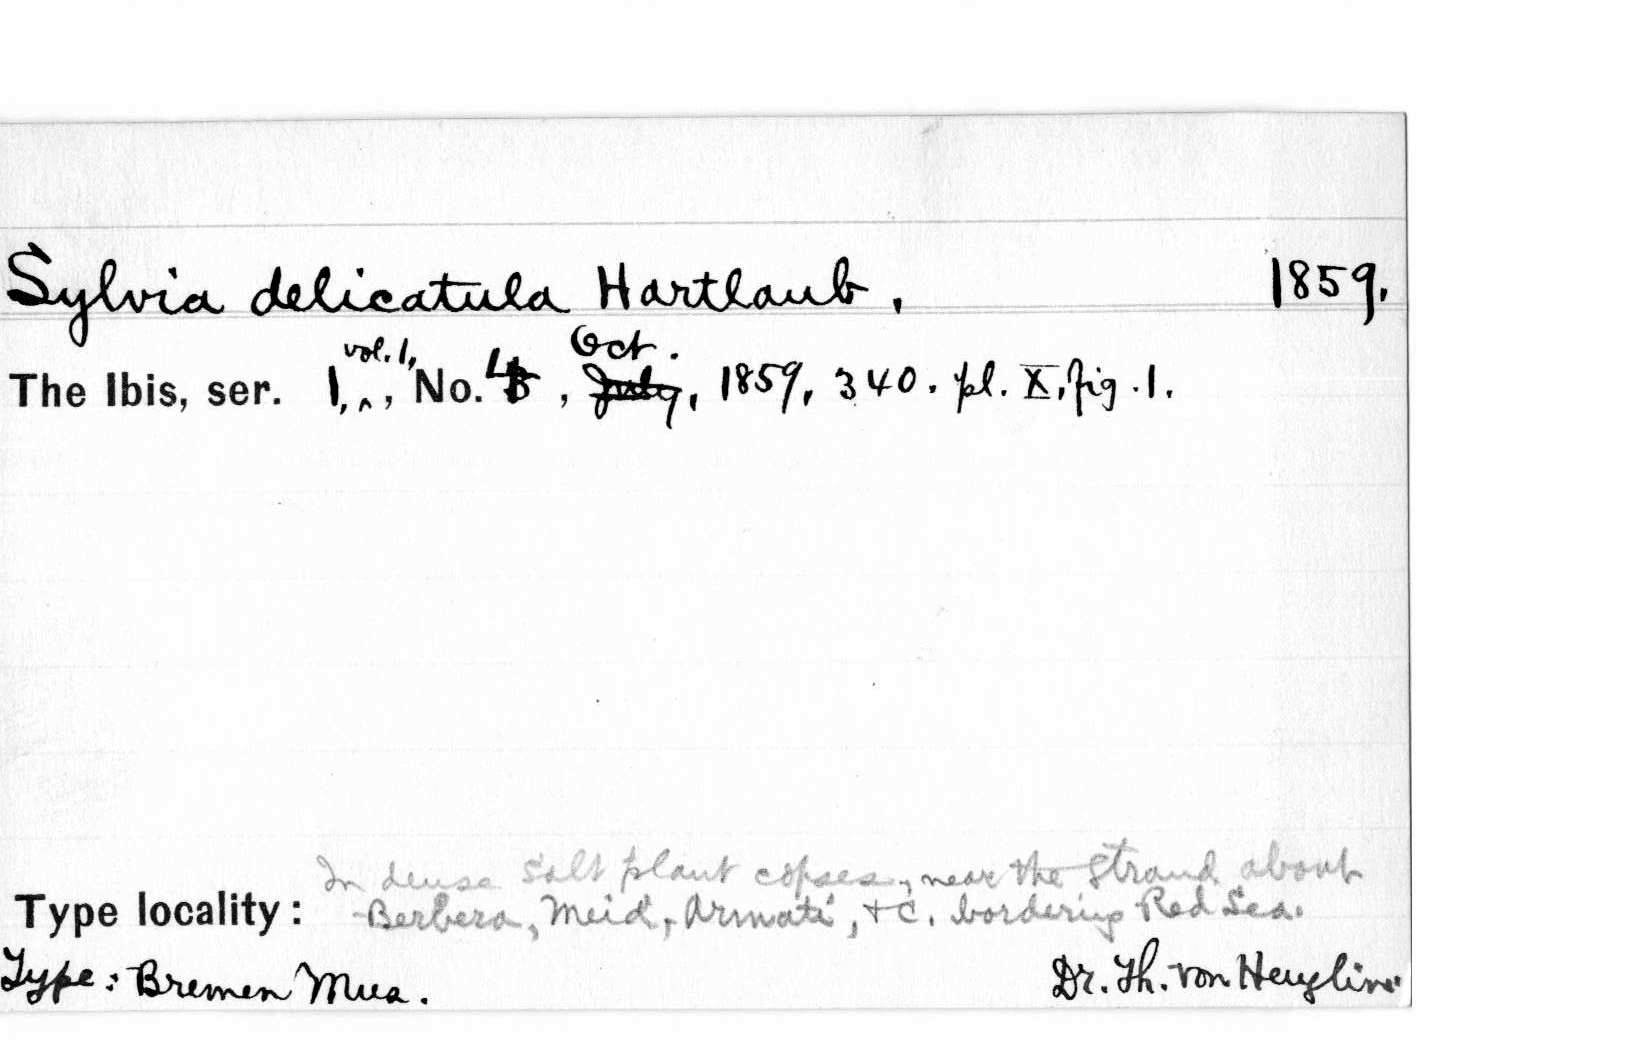 Sylvia delicatula Hartlaub, 1859.
vol. 1, Oct.
The Ibis, ser. 1, ^, No. 4, July, 1859, 340. pl. X, fig. 1.
In dense salt plant copses, near the Strand about
Type locality: Berbera, Meid, Armati, +c. bordering Red Sea.
Type: Bremen Mus. Dr. Th. von Heuglin.